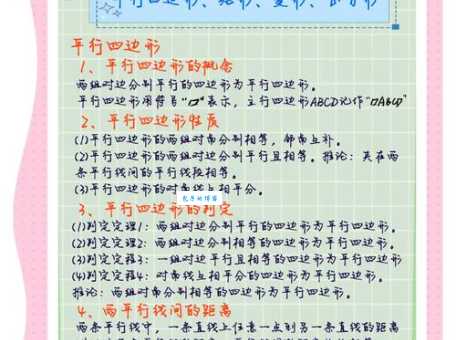 平行四边形、矩形、菱形、正方形
平行四边形
1、平行四边形的概念
两组对边分别平行的四边形为平行四边形。
平行四边形用符号"▱"表示，平行四边形ABCD记作"▱ABCD"
2、平行四边形性质
(1)平行四边形的两组对角分别相等，邻角互补。
(2)平行四边形的两组对边分别平行且相等。推论：夹在两
条平行线间的平行线段相等。
(3)平行四边形的对角线互相平分。
3、平行四边形的判定
(1)判定定理1：两组对边分别平行的四边形为平行四边形。
(2)判定定理2：两组对边分别相等的四边形为平行四边形。
(3)判定定理3：一组对边平行且相等的四边形为平行四边形
(4)判定定理4：对角线互相平分的四边形为平行四边形。
推论：两组对角分别相等的四边形为平行四边形。
4、两平行线间的距离
两条平行线中，一条直线上任意一点到另一条直线的距离